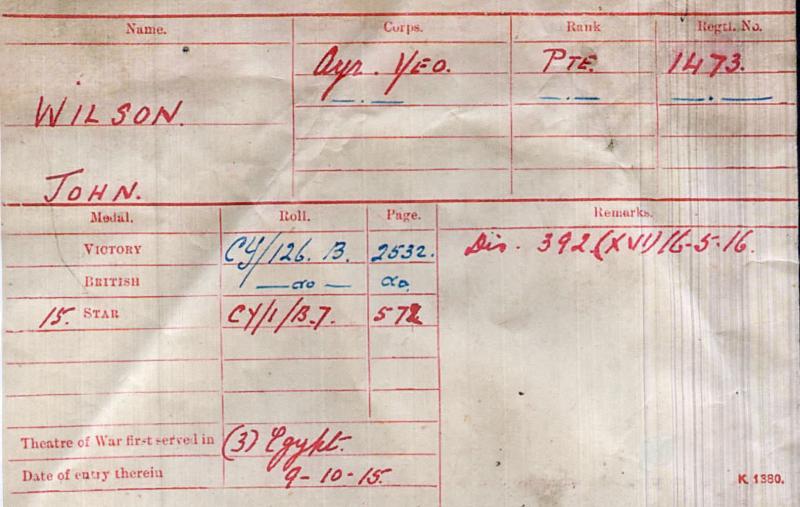 Name. Corps. Rank Regtl. No.
Ayr. YEO. PTE. 1473.
WILSON.
JOHN.
Medal. Roll. Page. Remarks.
VICTORY CY/126. B. 2532. Dis. 392.(XVI) 16-5-16.
BRITISH —do— do.
15. STAR CY/1/B.7. 572
Theatre of War first served in (3) Egypt.
Date of entry therein 9-10-15.
K 1380.